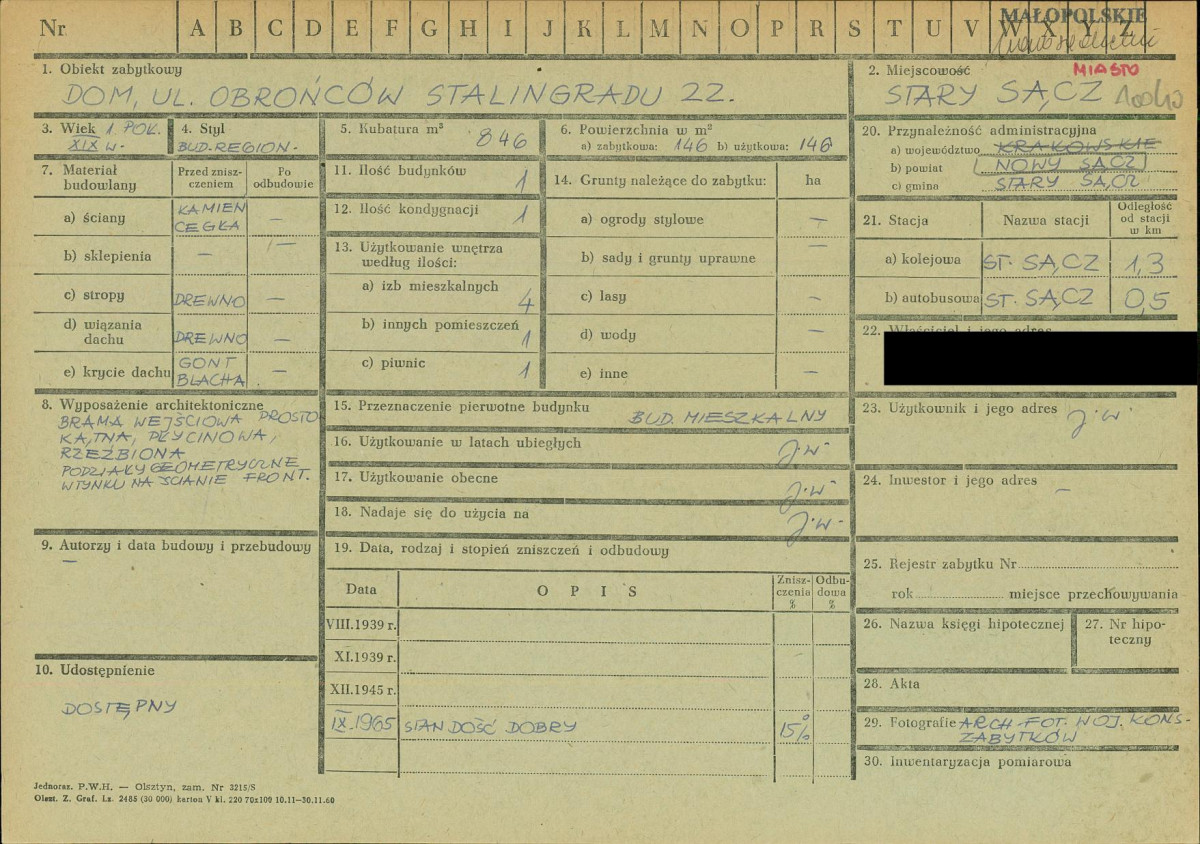 Nr A B C D E F G H I J K L M N O P R S T U V W X Y Z
MAŁOPOLSKIE
1. Obiekt zabytkowy
DOM, UL. OBROŃCÓW STALINGRADU 22.
2. Miejscowość
MIASTO
STARY SĄCZ
3. Wiek 1. POŁ.
XIX w.
4. Styl
BUD. REGION.
5. Kubatura m³ 846
6. Powierzchnia w m²
a) zabytkowa: 146 b) użytkowa: 146
20. Przynależność administracyjna
a) województwo KRAKOWSKIE
b) powiat NOWY SĄCZ
c) gmina STARY SĄCZ
7. Materiał budowlany
Przed zniszczeniem
Po odbudowie
a) ściany KAMIEŃ CEGŁA —
b) sklepienia — —
c) stropy DREWNO —
d) wiązania dachu DREWNO —
e) krycie dachu GONT BLACHA —
11. Ilość budynków 1
12. Ilość kondygnacji 1
13. Użytkowanie wnętrza według ilości:
a) izb mieszkalnych 4
b) innych pomieszczeń 1
c) piwnic 1
14. Grunty należące do zabytku: ha
a) ogrody stylowe —
b) sady i grunty uprawne —
c) lasy —
d) wody —
e) inne —
21. Stacja
Nazwa stacji
Odległość od stacji w km
a) kolejowa ST. SĄCZ 1,3
b) autobusowa ST. SĄCZ 0,5
22. Właściciel i jego adres
8. Wyposażenie architektoniczne
BRAMA WEJŚCIOWA PROSTO
KĄTNA, PŁYCINOWA,
RZEŹBIONA
PODZIAŁY GEOMETRYCZNE
W TYNKU NA ŚCIANIE FRONT.
15. Przeznaczenie pierwotne budynku BUD. MIESZKALNY
16. Użytkowanie w latach ubiegłych j.w.
17. Użytkowanie obecne j.w.
18. Nadaje się do użycia na j.w.
23. Użytkownik i jego adres j.w.
24. Inwestor i jego adres
—
9. Autorzy i data budowy i przebudowy
—
19. Data, rodzaj i stopień zniszczeń i odbudowy
Data
OPIS
Zniszczenia %
Odbudowa %
VIII.1939 r.
XI.1939 r.
XII.1945 r.
IX.1965 STAN DOŚĆ DOBRY 15%
25. Rejestr zabytku Nr
rok miejsce przechowywania
26. Nazwa księgi hipotecznej
27. Nr hipoteczny
28. Akta
29. Fotografie ARCH. FOT. WOJ. KONS.
ZABYTKÓW
30. Inwentaryzacja pomiarowa
10. Udostępnienie
DOSTĘPNY
Jednoraz. P.W.H. — Olsztyn, zam. Nr 3215/S
Olszt. Z. Graf. Lz. 2485 (30 000) karton V kl. 220 70x109 10.11—30.11.60